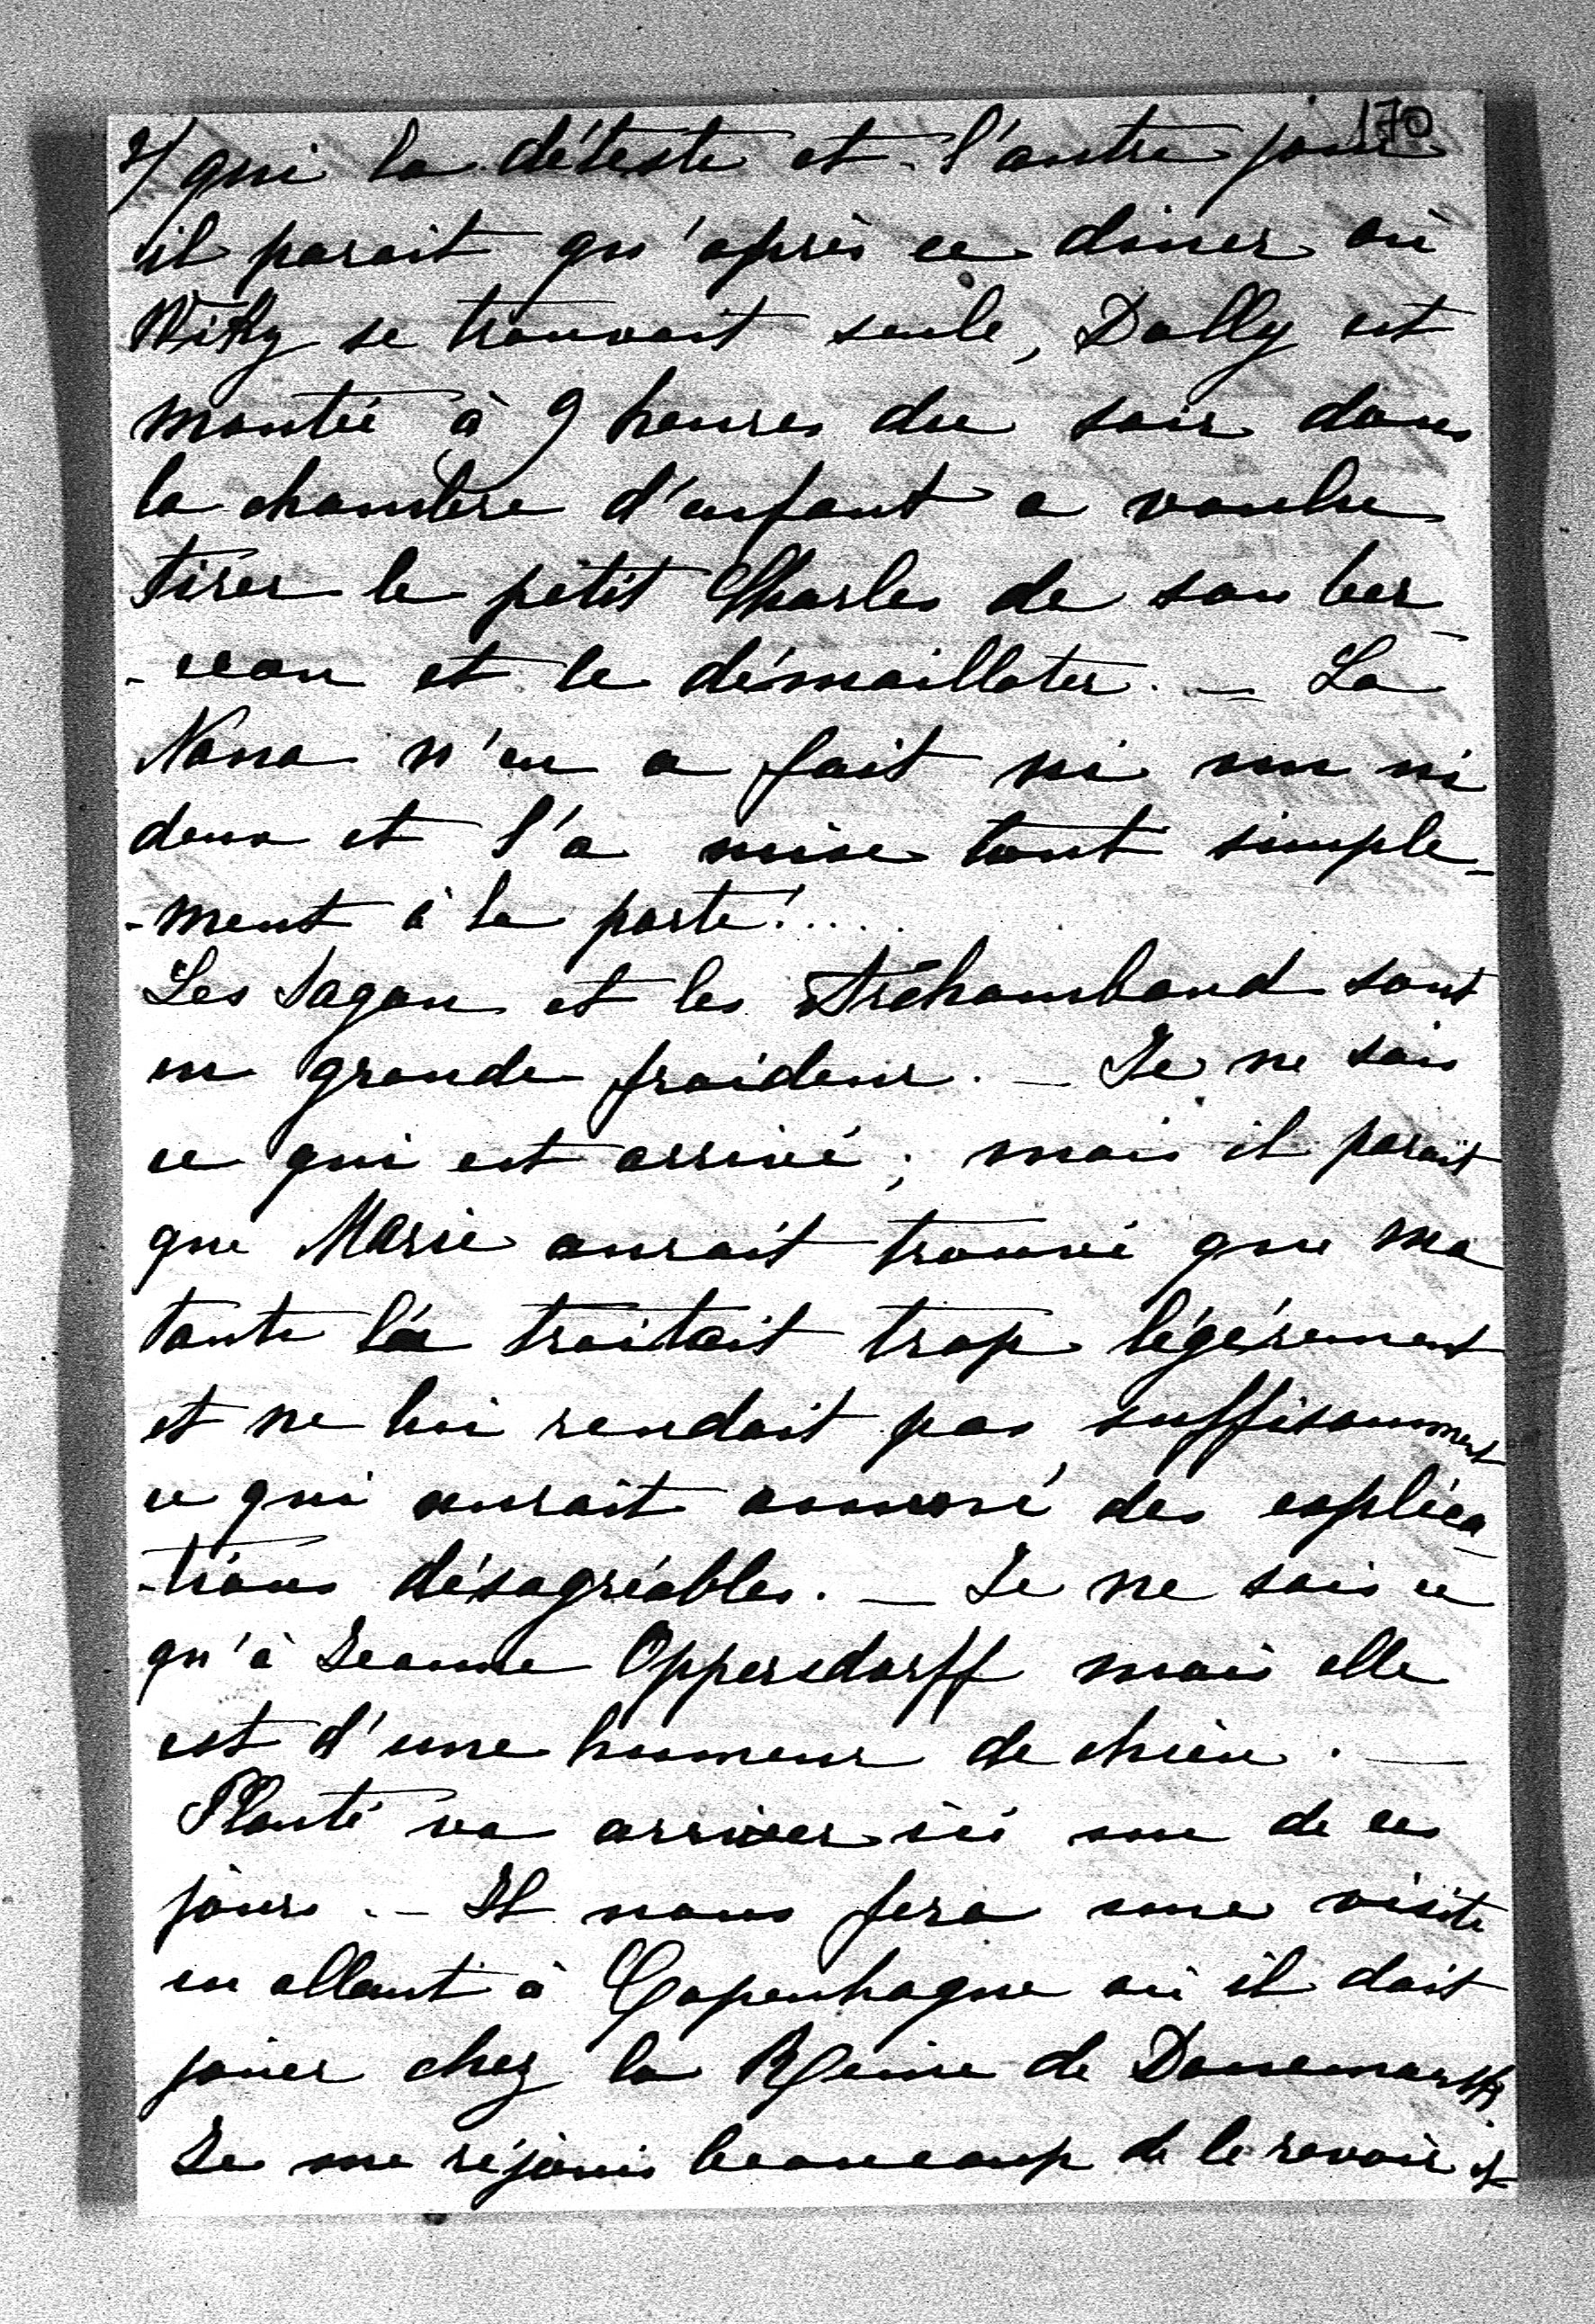 170
2/ qui la déteste et l'autre jour
il parait qu'après ce diner où
se trouvait seule, Dolly est
montée à 9 heures du soir dans
la chambre d'enfant a voulu
tirer le petit Charles de son ber-
-ceau et le démailloter. — La
Nana n'en a fait ni un ni
deux et l'a mise tout simple-
-ment à la porte!....
Les Sagan et les sont
en grande froideur. — Je ne sais
ce qui est arrivé; mais il parait
que Marie aurait trouvé que ma
tante la traitait trop légérement
et ne lui rendait pas suffisamment
ce qui aurait amené des explica-
-tions désagréables. — Je ne sais ce
qu'à Jeanne Oppersdorff mais elle
est d'une humeur de chien. —
Planté va arriver ici un de ces
jours. — Il nous fera une visite
en allant à Copenhague où il doit
jouer chez la Reine de Danemark.
Je me réjouis beaucoup de le revoir et